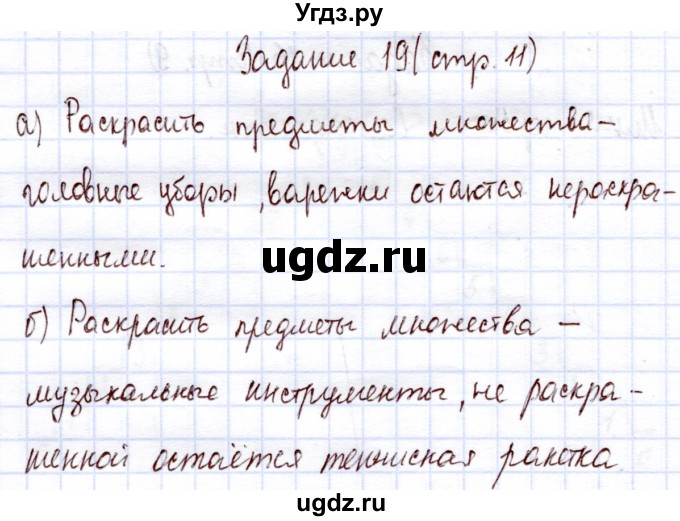 Угдз.ру
Задание 19 (стр. 11)
а) Раскрасить предметы множества –
головные уборы, варежки остаются нероскра-
шенными.
ugdz.ru
б) Раскрасить предметы множества –
музыкальные инструменты, не раскра-
шенной остаётся теннисная ракетка.
ugdz.ru